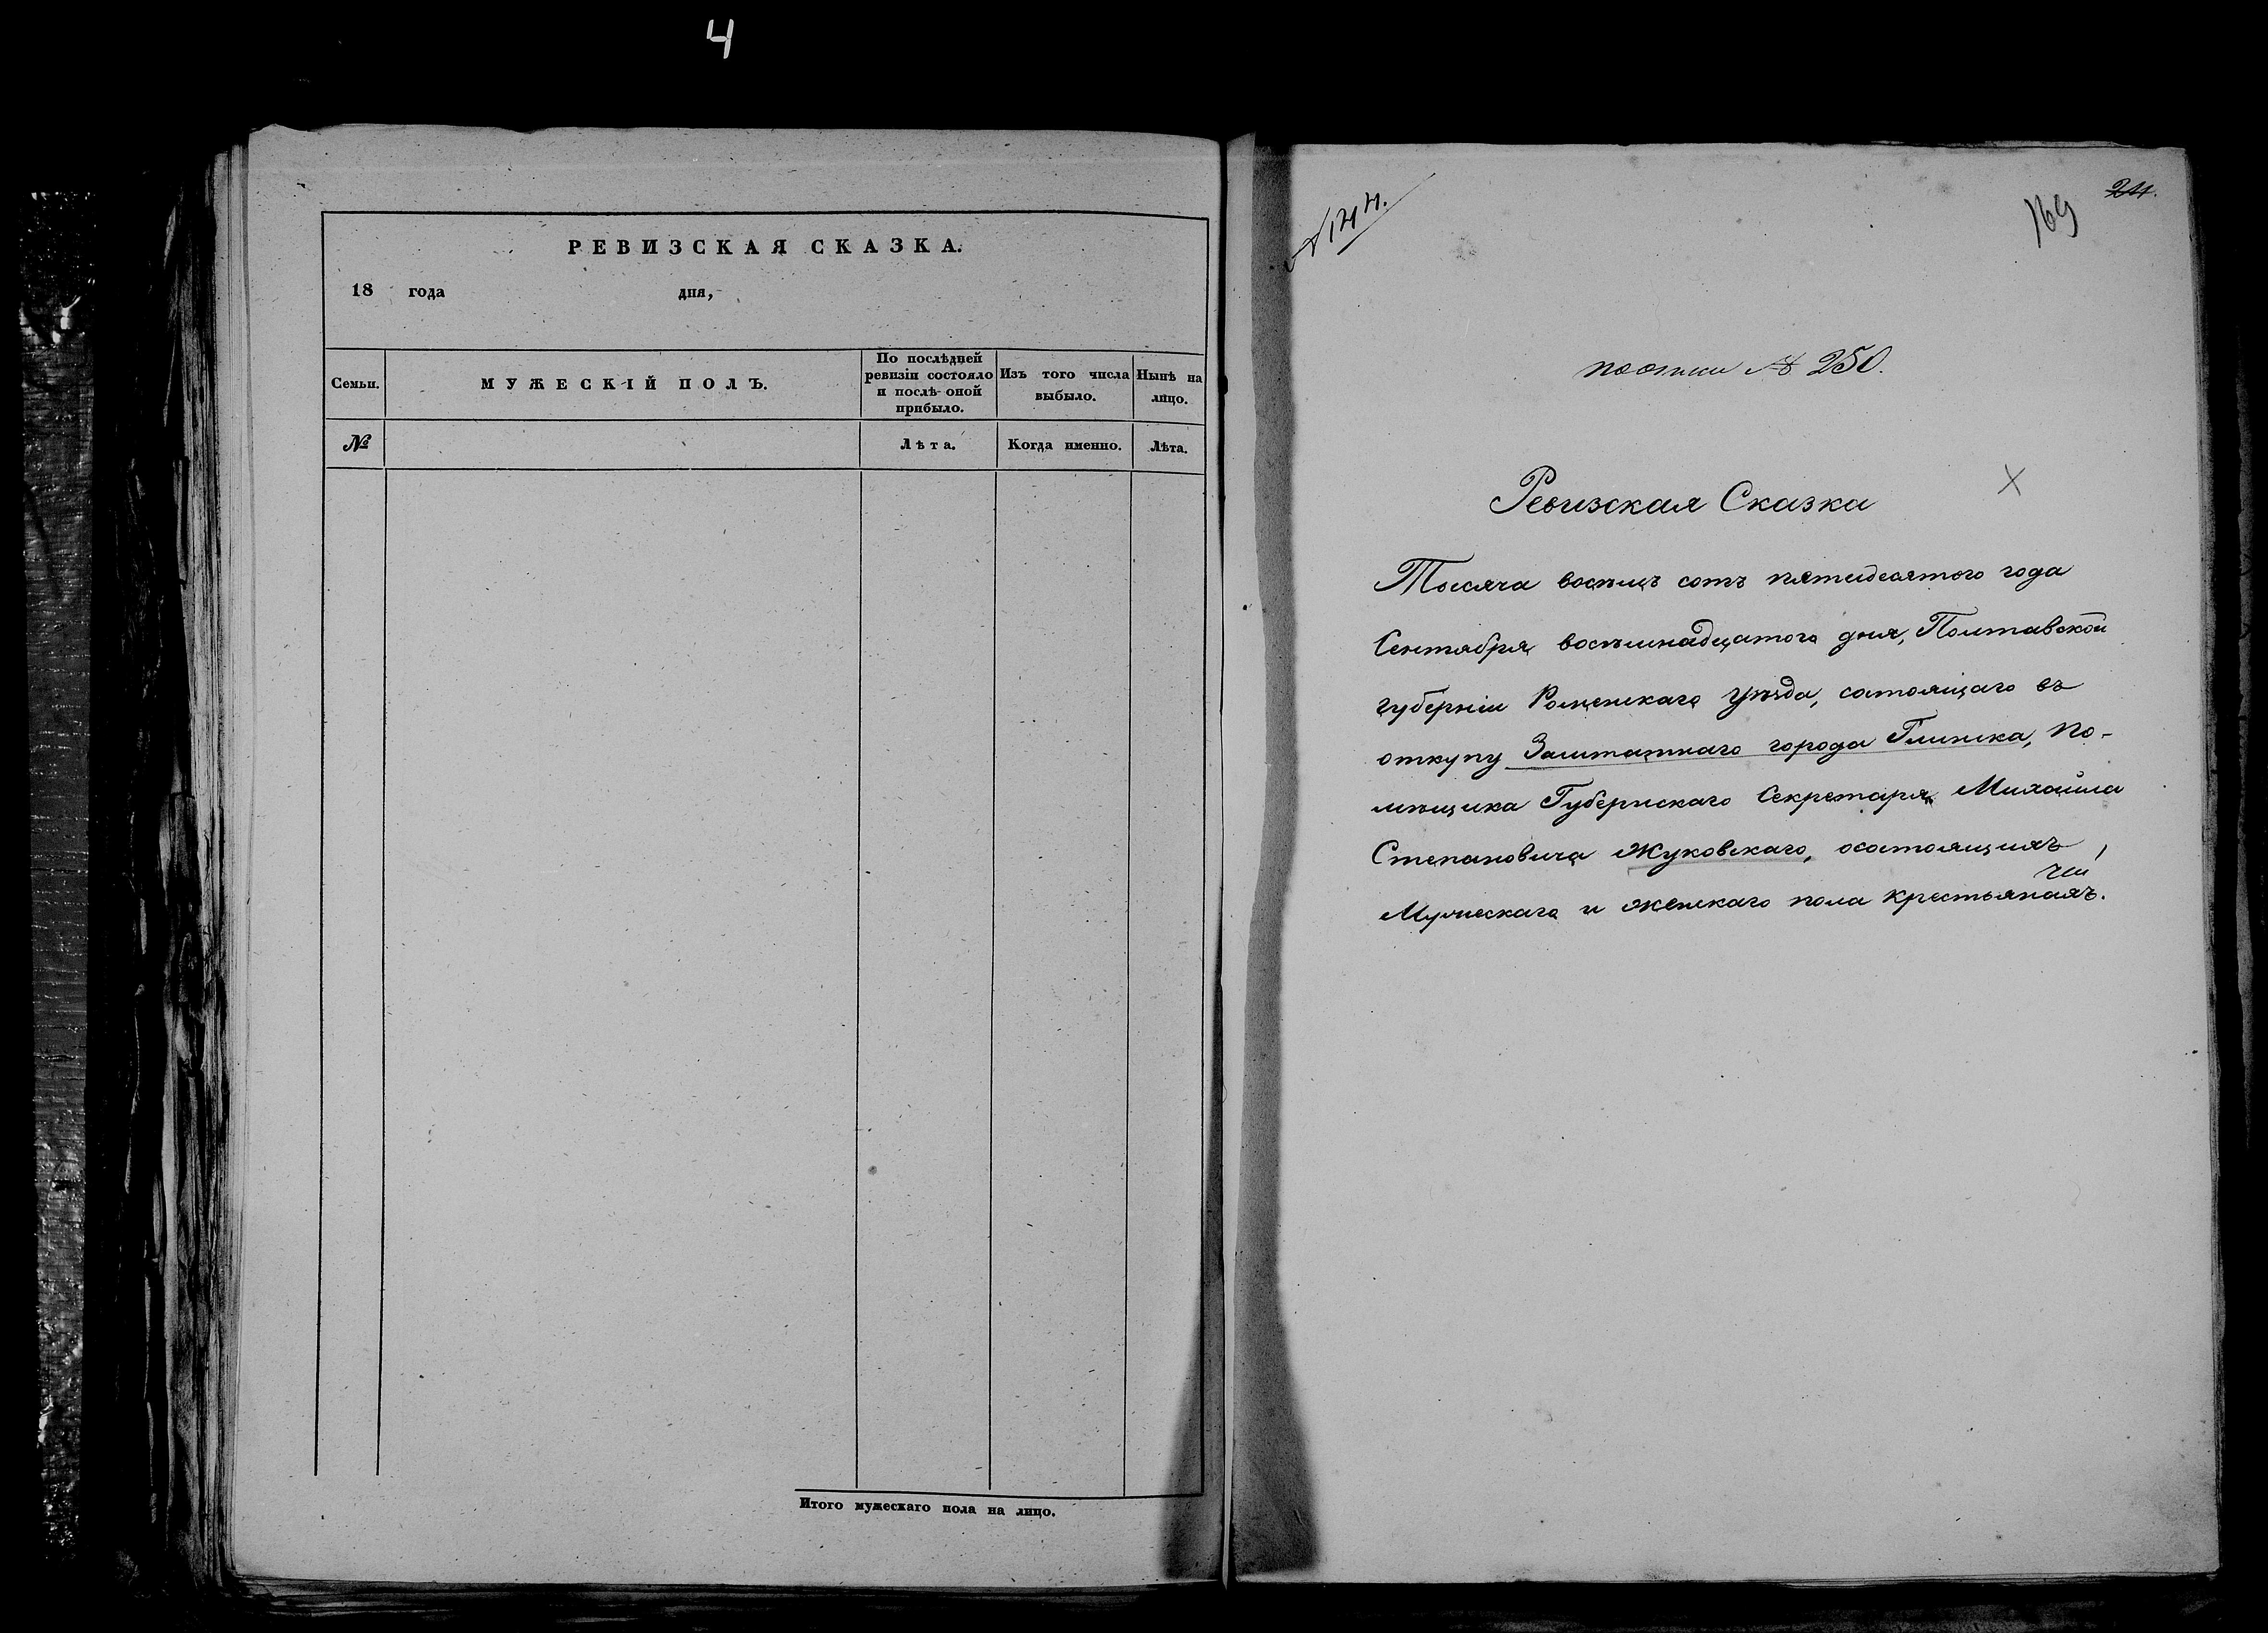 4
РЕВИЗСКАЯ СКАЗКА.
18 года дня,
Семьи.
МУЖЕСКІЙ ПОЛЪ.
По послѣдней ревизіи состояло и послѣ оной прибыло.
Изъ того числа выбыло.
Нынѣ на лицо.
№
Лѣта.
Когда именно.
Лѣта.
Итого мужескаго пола на лицо.
169
24.
№ 250.
Ревизская Сказка
Тысяча восемь сотъ пятидесятого года
Сентября восемнадцатого дня, Полтавской
губерніи Роменскаго уѣзда, состоящаго въ
откупу Заштатнаго города Глинска, По-
мѣщика Губернскаго Секретаря Михайла
Степановича Жуковскаго, осостоящихъ
Мужескаго и женскаго пола крестьянахъ.